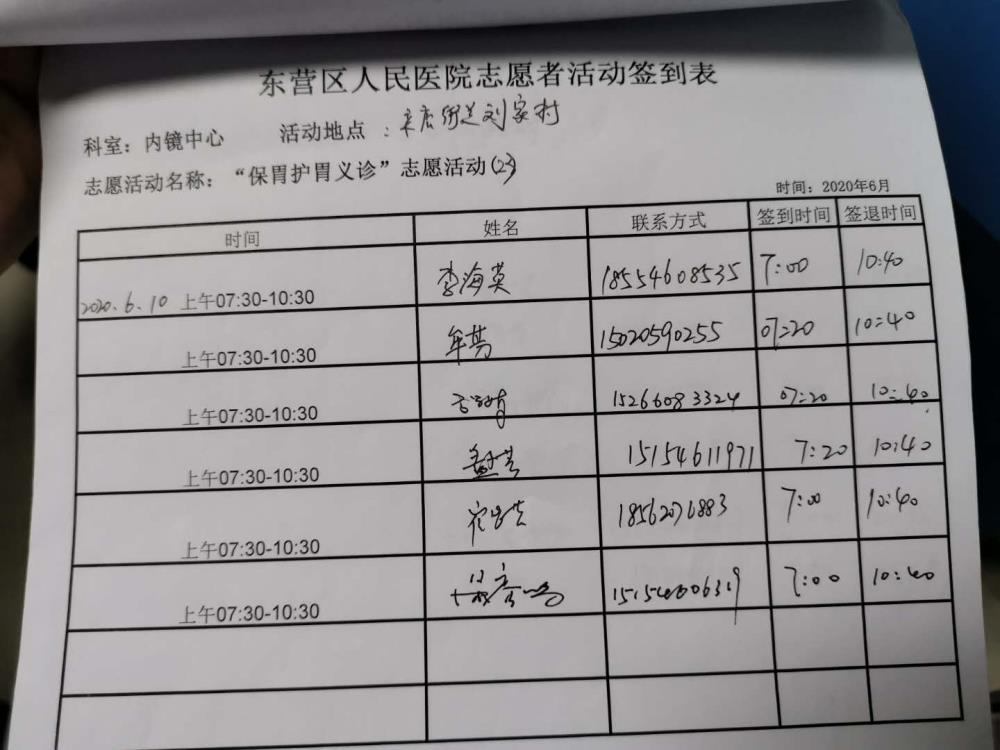 东营区人民医院志愿者活动签到表
科室：内镜中心 活动地点：辛店街道刘家村
志愿活动名称：“保胃护胃义诊”志愿活动(23)
时间：2020年6月
时间 姓名 联系方式 签到时间 签退时间
2020.6.10 上午07:30-10:30 李海英 18554608535 7:00 10:40
上午07:30-10:30 15020590255 07:20 10:40
上午07:30-10:30 15266083324 07:20 10:40
上午07:30-10:30 15154611971 7:20 10:40
上午07:30-10:30 18562076883 7:00 10:40
上午07:30-10:30 7:00 10:40